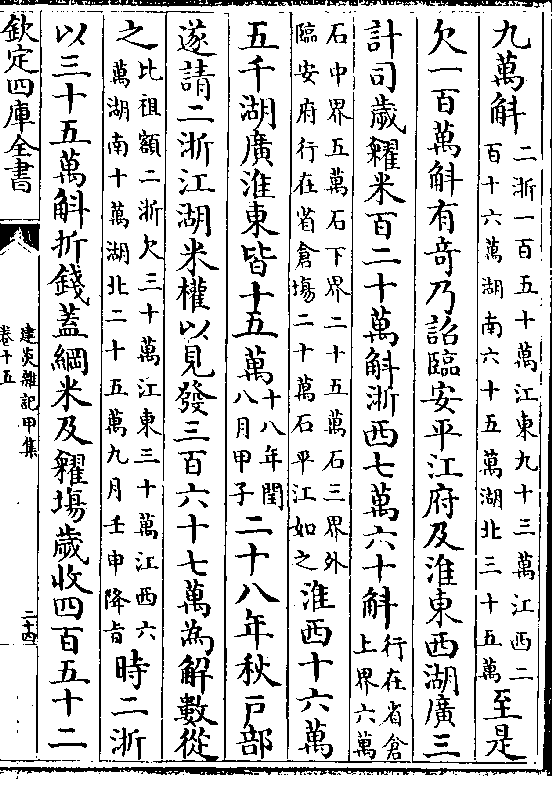 九萬斛二浙一百五十萬江東九十三萬江西二百十六萬湖南六十五萬湖北三十五萬至是
欠一百萬斛有奇乃詔臨安平江府及淮東西湖廣三
計司歲糴米百二十萬斛浙西七萬六十斛行在省倉上界六萬
石中界五萬石下界二十五萬石三界外臨安府行在省倉塲二十萬石平江如之淮西十六萬
五千湖廣淮東皆十五萬十八年閏八月甲子二十八年秋戸部
遂請二浙江湖米權以見發三百六十七萬為解數從
之比祖額二浙欠三十萬江東三十萬江西六萬湖南十萬湖北二十五萬九月壬申降旨時二浙
以三十五萬斛折錢蓋綱米及糴塲歲收四百五十二
欽定四庫全書
建炎雜記甲集
卷十五
二十四